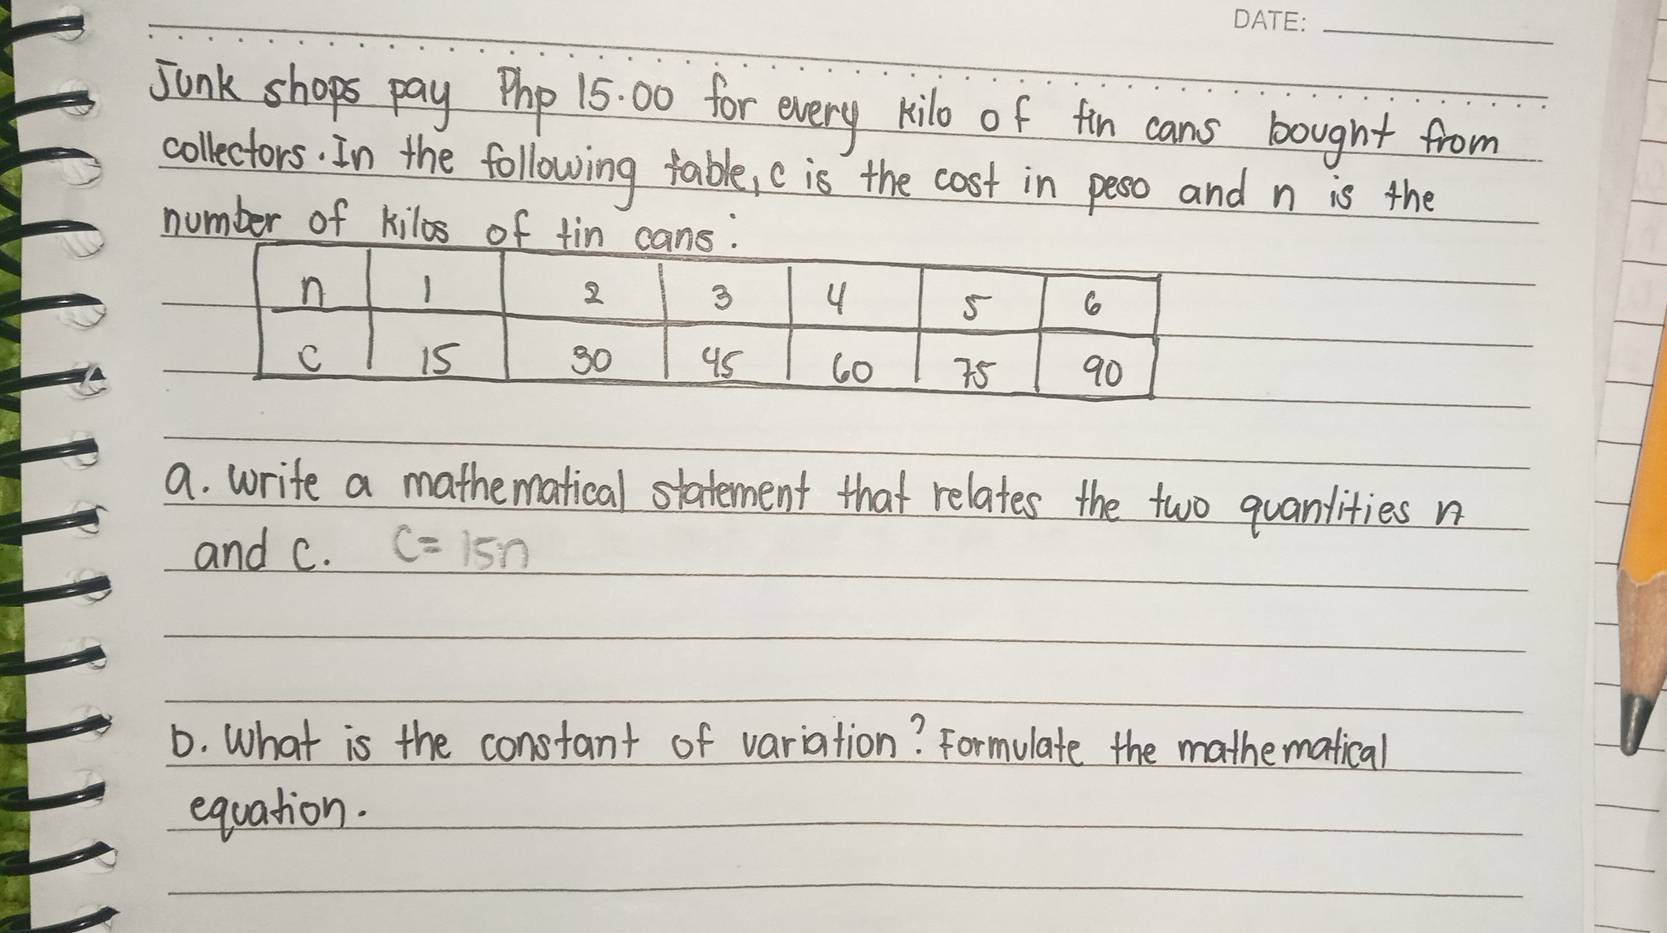 DATE:
Junk shops pay Php 15.00 for every kilo of tin cans bought from
collectors. In the following table, c is the cost in peso and n is the
number of kilos of tin cans:
n 1 2 3 4 5 6
C 15 30 45 60 75 90
a. write a mathematical statement that relates the two quantities n
and c. C = 15n
b. What is the constant of variation? Formulate the mathematical
equation.